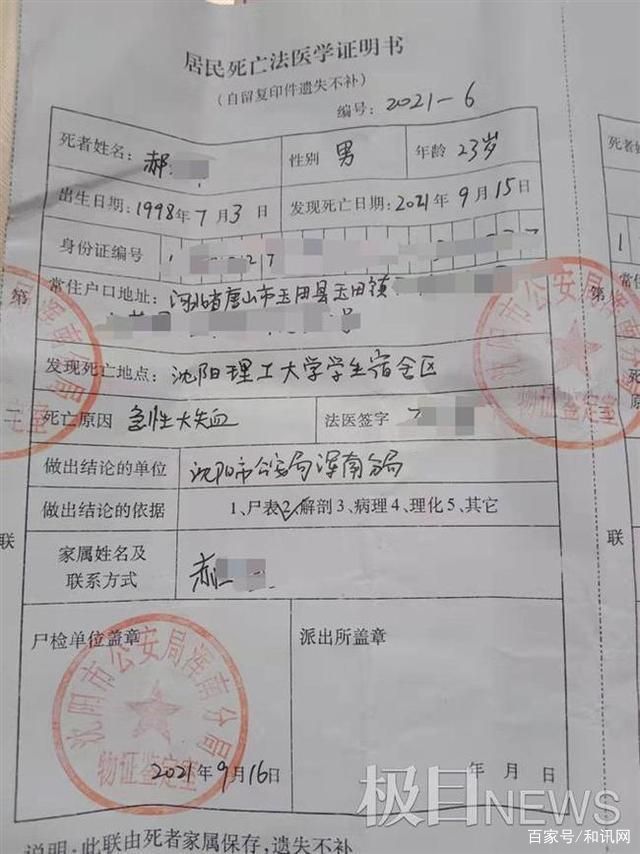 居民死亡法医学证明书
(自留复印件遗失不补)
编号: 2021-6
死者姓名: 郝
性别 男
年龄 23岁
出生日期: 1998年7月3日
发现死亡日期: 2021年9月15日
身份证编号
常住户口地址: 河北省唐山市玉田县玉田镇
号
发现死亡地点: 沈阳理工大学学生宿舍区
死亡原因 急性大失血
法医签字
做出结论的单位 沈阳市公安局浑南分局
做出结论的依据 1、尸表2、解剖3、病理4、理化5、其它
家属姓名及
联系方式
郝
尸检单位盖章
派出所盖章
沈阳市公安局浑南分局
物证鉴定室
2021年9月16日
年 月 日
说明: 此联由死者家属保存,遗失不补
第
二
联
沈阳市公安局浑南分局
物证鉴定室
第
联
极目NEWS
百家号/和讯网